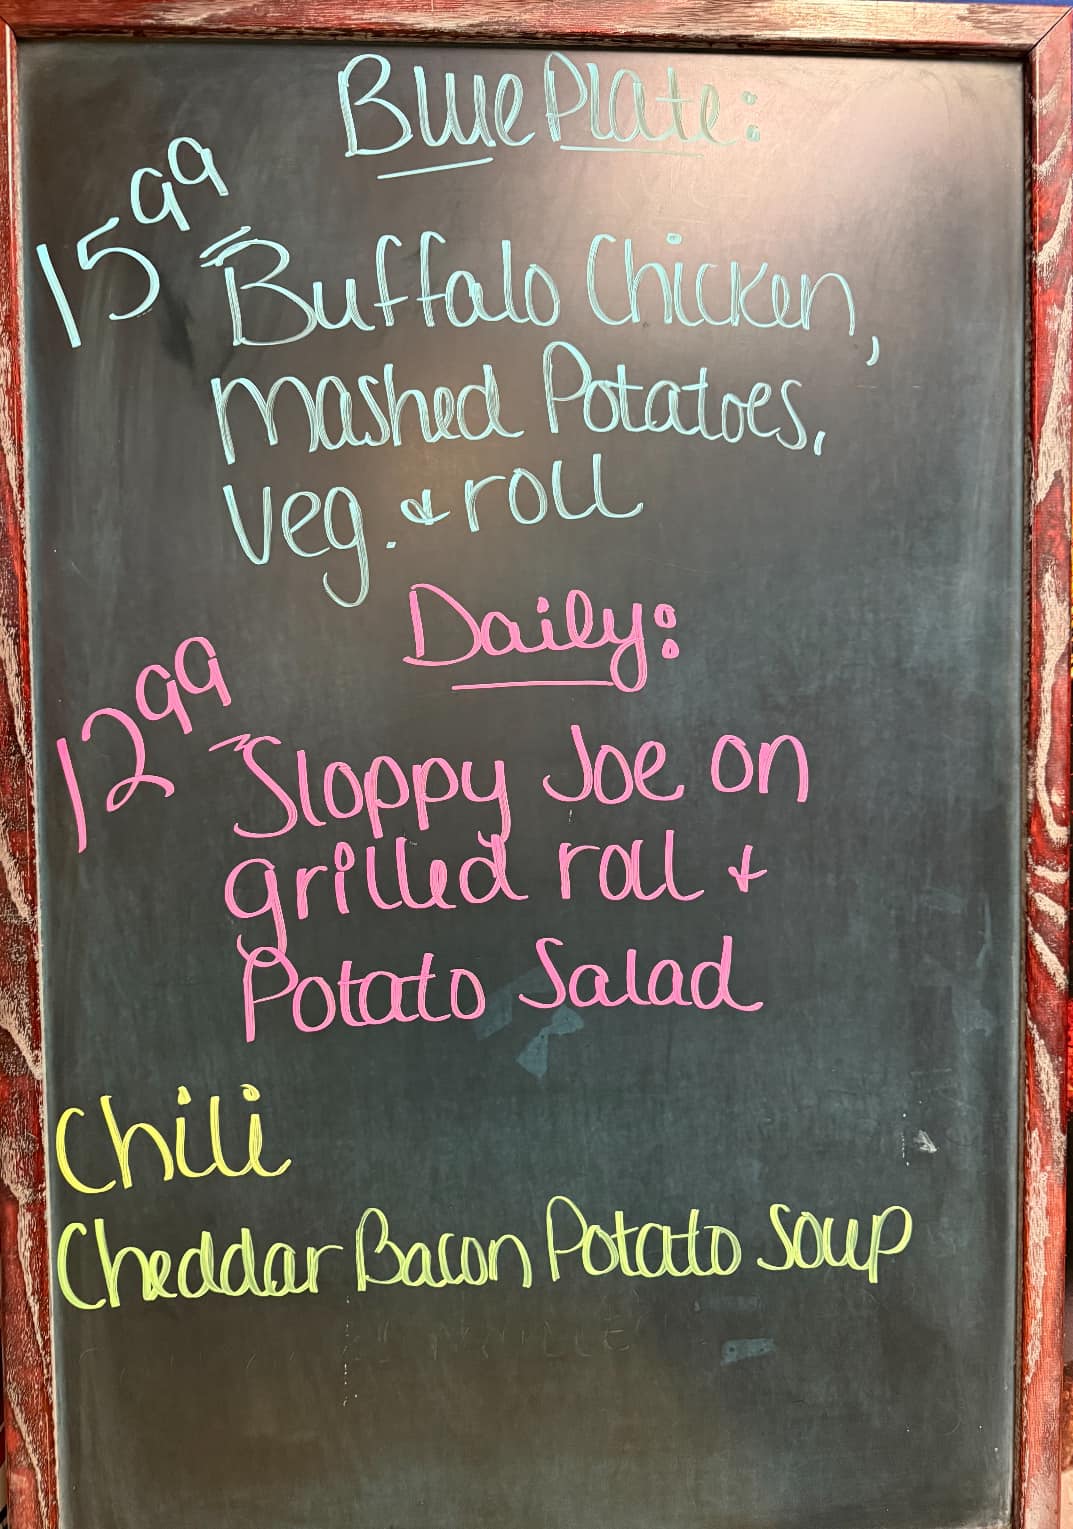 Blue Plate:
15.99
Buffalo Chicken,
mashed Potatoes,
Veg. & roll
Daily:
12.99
Sloppy Joe on
grilled roll &
Potato Salad
Chili
Cheddar Bacon Potato Soup